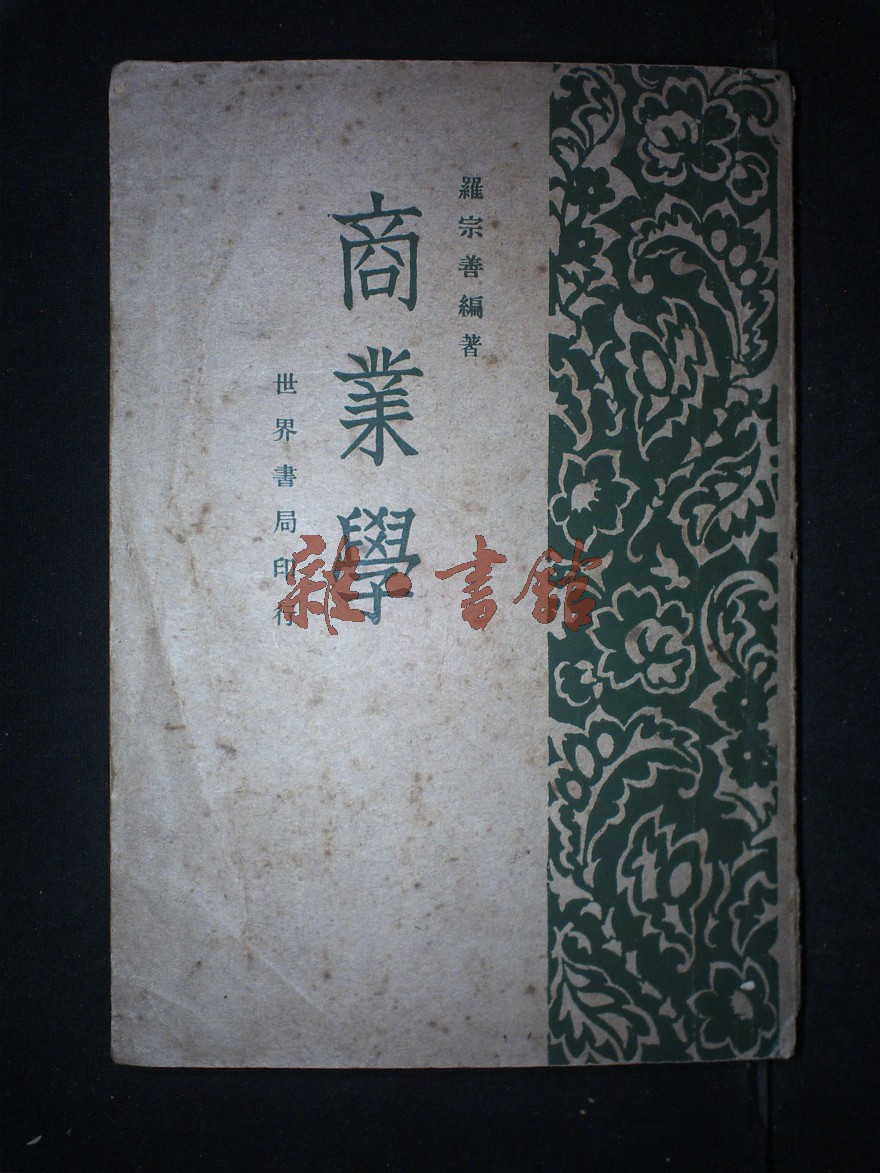 羅宗善編著
商業學
世界書局印行
雜·書館